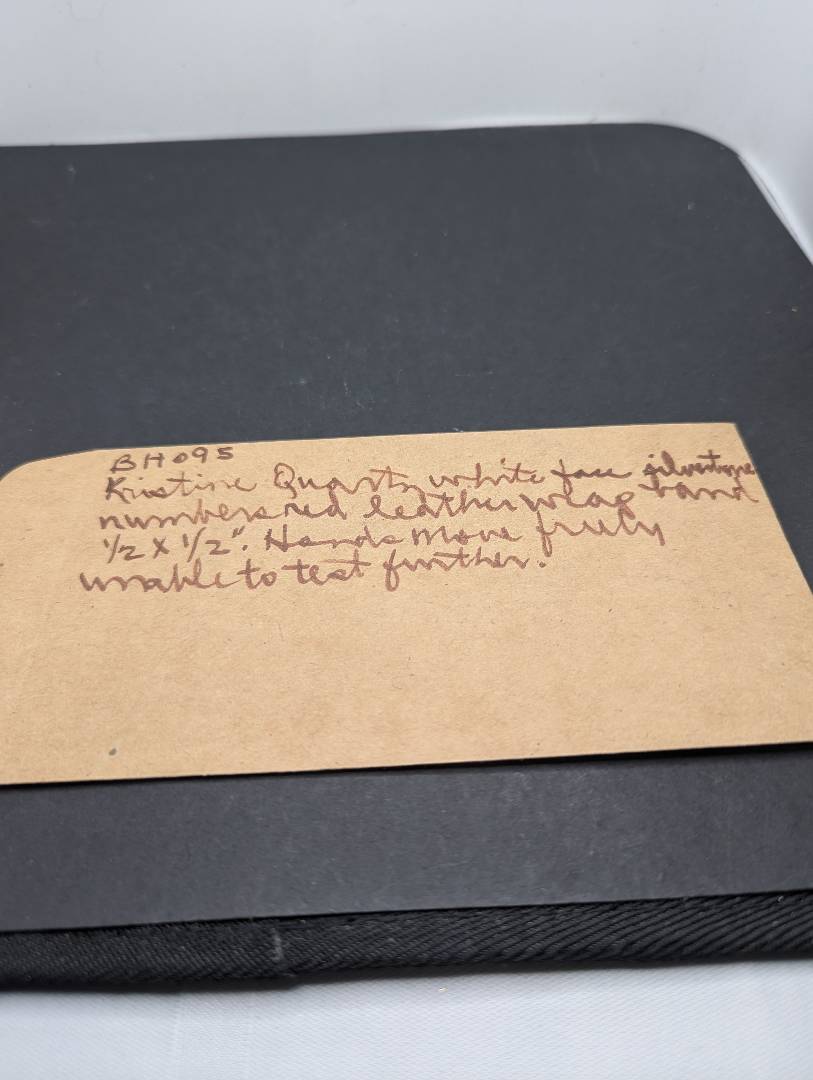 BH095
Kristine Quartz white face silvertone
numbers red leather wrap band
1/2 x 1/2". Hands move freely
unable to test further.